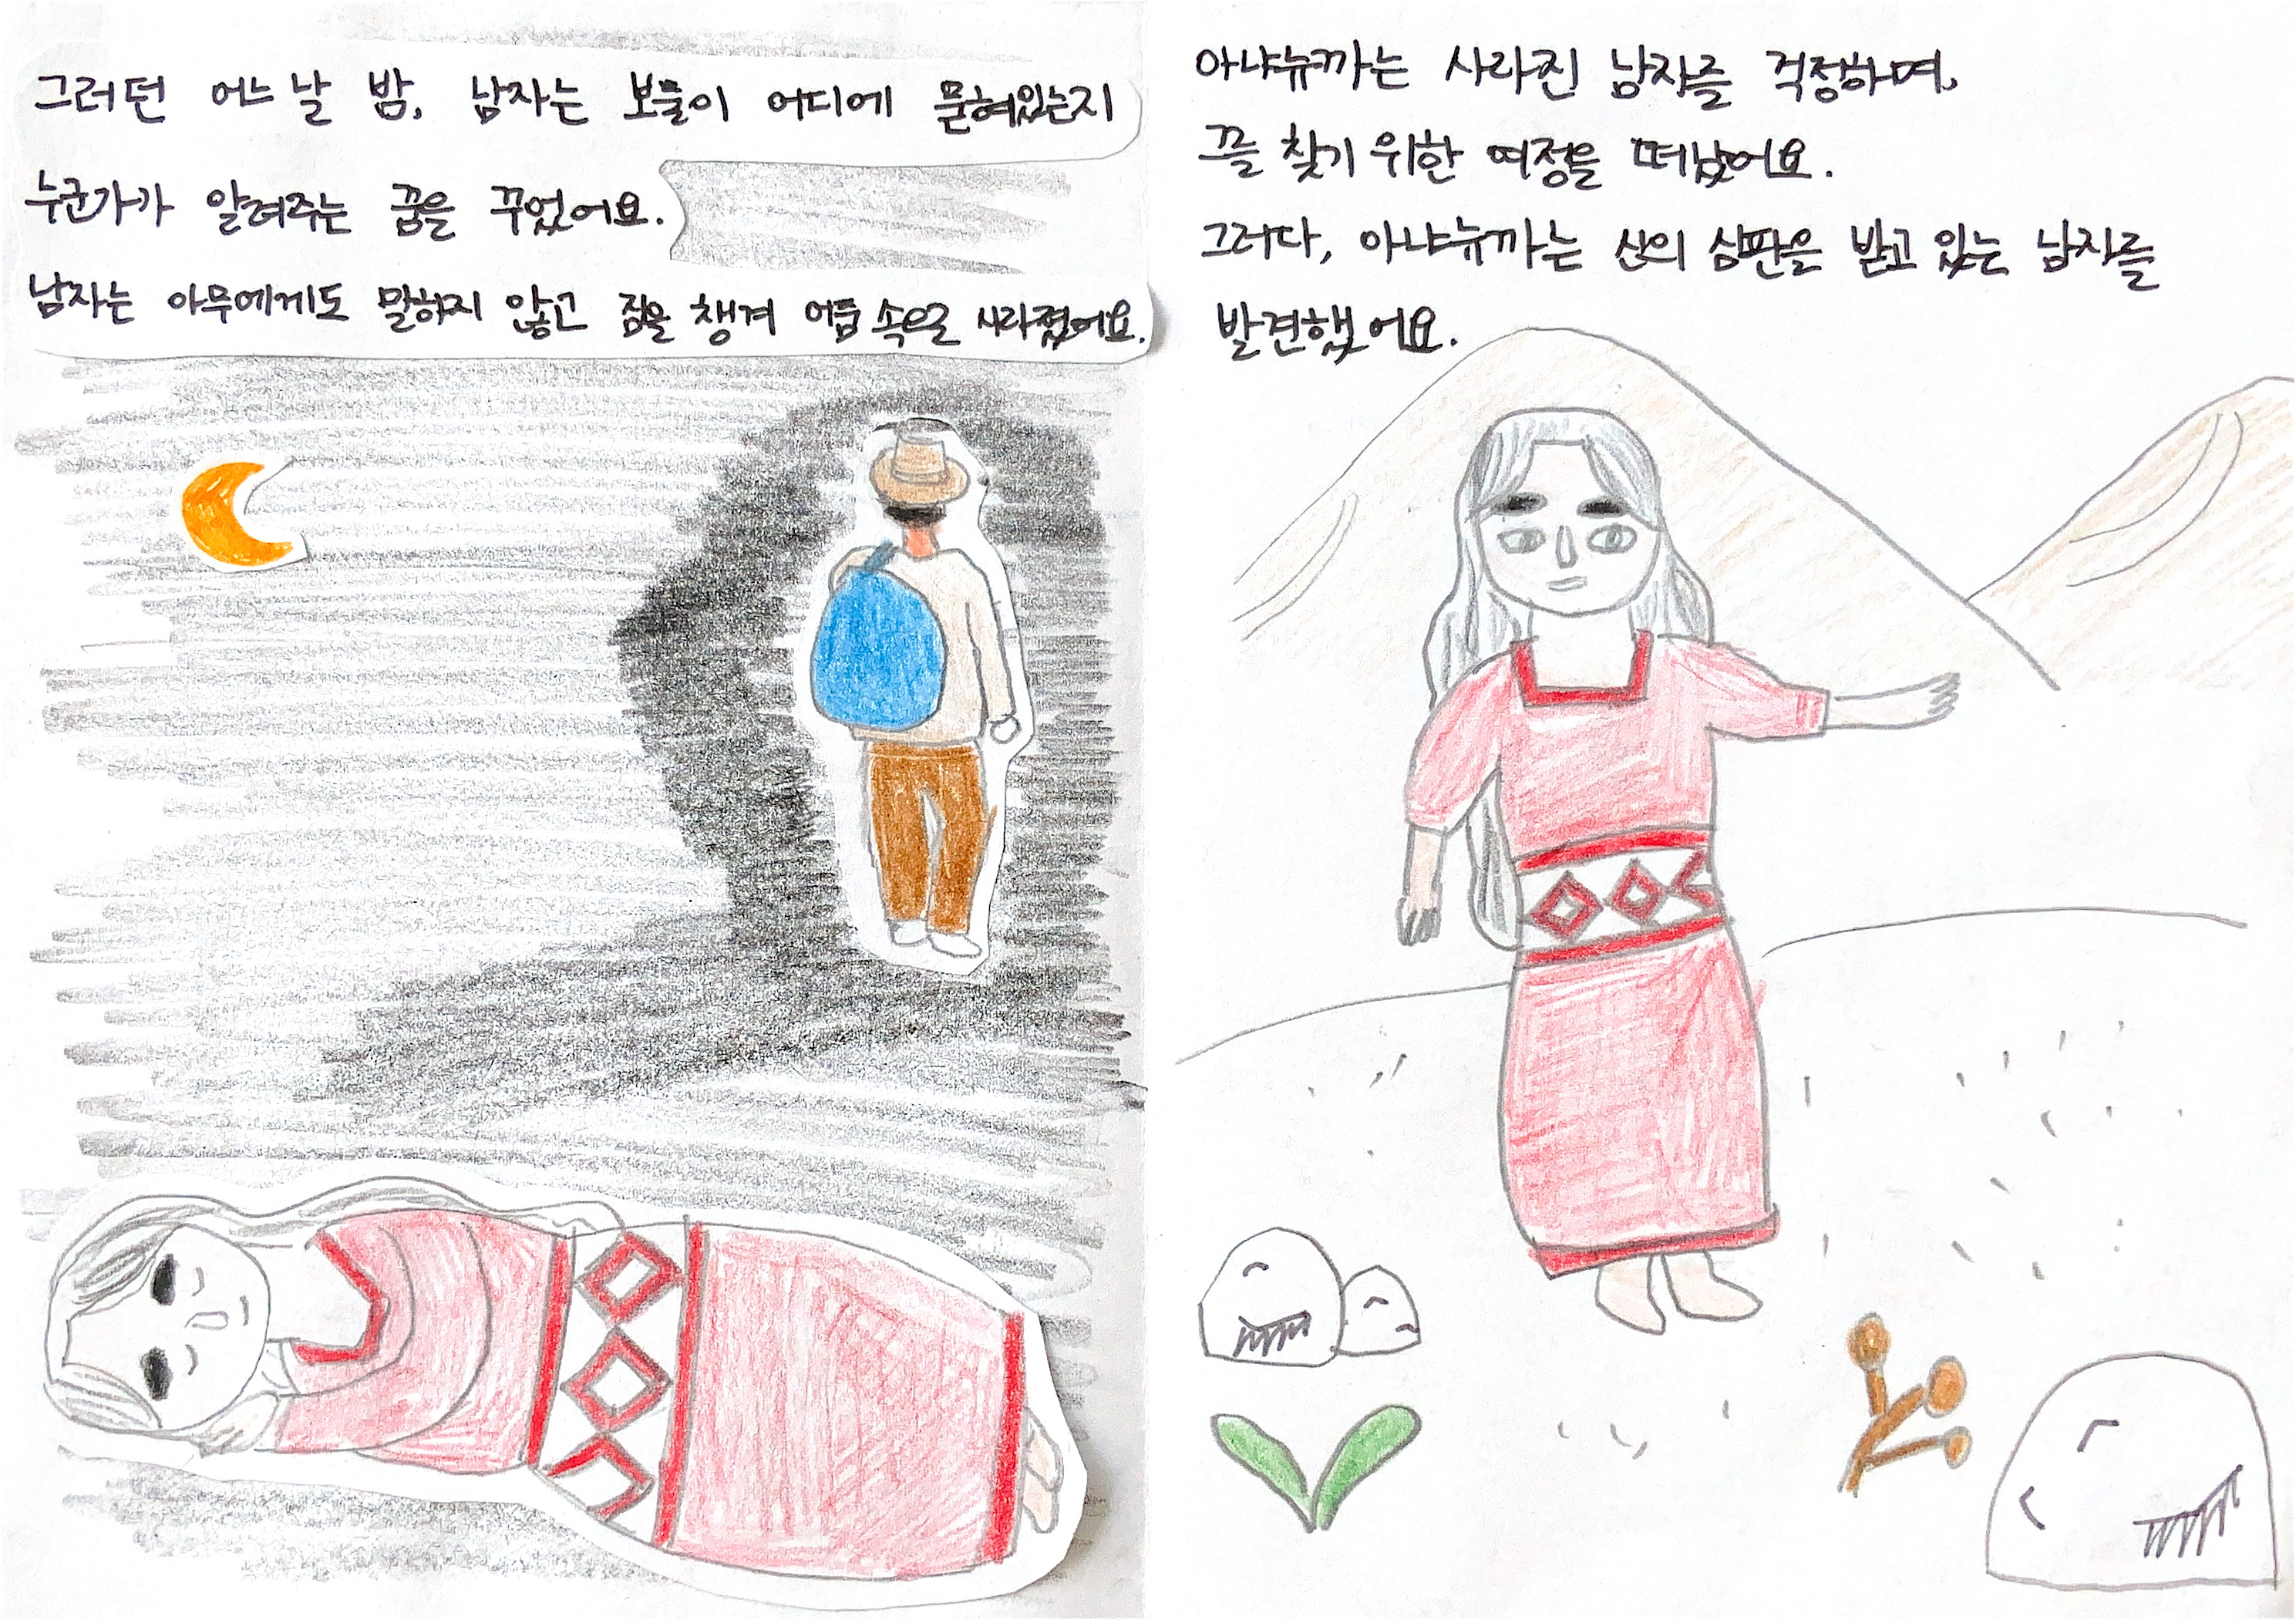 그러던 어느 날 밤, 남자는 보물이 어디에 묻혀있는지
누군가가 알려주는 꿈을 꾸었어요.
남자는 아무에게도 말하지 않고 짐을 챙겨 어둠 속으로 사라졌어요.
아냐뉴까는 사라진 남자를 걱정하며,
그를 찾기 위한 여정을 떠났어요.
그러다, 아냐뉴까는 산의 심판을 받고 있는 남자를
발견했어요.